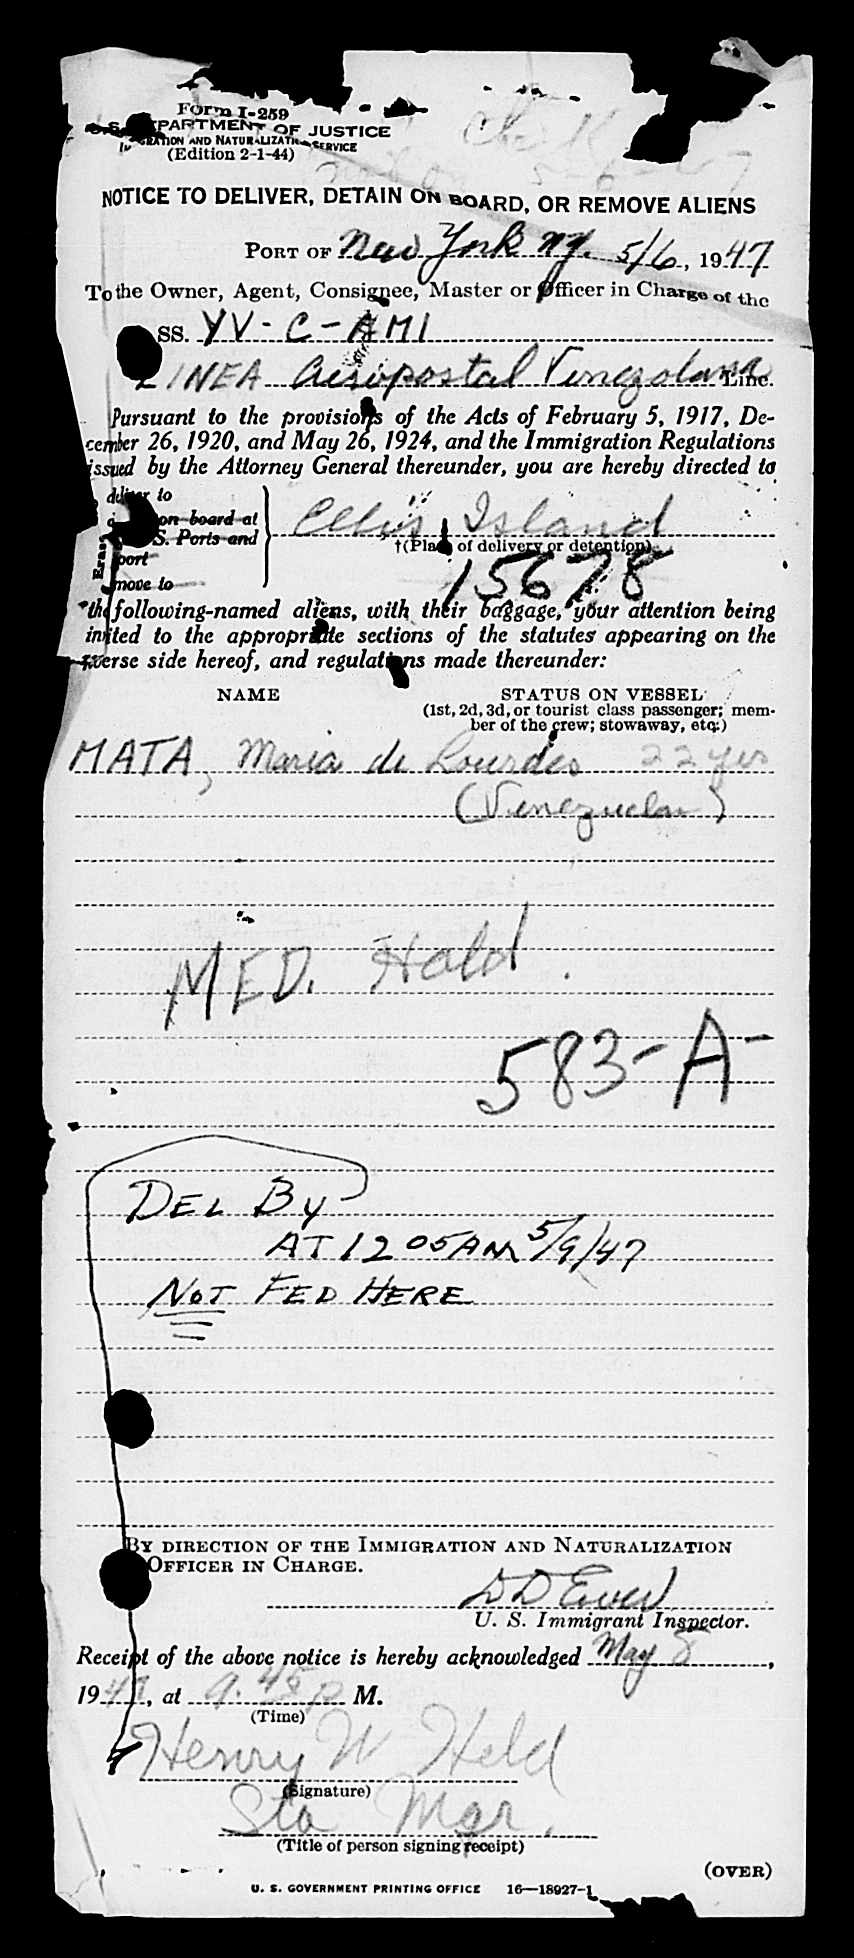 Form I-259
U. S. DEPARTMENT OF JUSTICE
IMMIGRATION AND NATURALIZATION SERVICE
(Edition 2-1-44)
NOTICE TO DELIVER, DETAIN ON BOARD, OR REMOVE ALIENS
PORT OF New York NY. 5/6, 1947
To the Owner, Agent, Consignee, Master or Officer in Charge of the
SS. YV-C-AMI
LINEA Aeropostal Venezolana Line.
Pursuant to the provisions of the Acts of February 5, 1917, De-
cember 26, 1920, and May 26, 1924, and the Immigration Regulations
issued by the Attorney General thereunder, you are hereby directed to
deliver to
on board at
S. Ports and
port
move to
Ellis Island
†(Place of delivery or detention)
15678
the following-named aliens, with their baggage, your attention being
invited to the appropriate sections of the statutes appearing on the
reverse side hereof, and regulations made thereunder:
NAME STATUS ON VESSEL
(1st, 2d, 3d, or tourist class passenger; mem-
ber of the crew; stowaway, etc.)
MATA, Maria de Lourdes 22 yrs
(Venezuelan)
MED. Hold.
583-A-
DEL BY
AT 12 05 AM 5/9/47
NOT FED HERE
BY DIRECTION OF THE IMMIGRATION AND NATURALIZATION
OFFICER IN CHARGE.
U. S. Immigrant Inspector.
Receipt of the above notice is hereby acknowledged May 8,
1947, at 9.45 P M.
(Time)
Henry W Held
(Signature)
Sta Mgr.
(Title of person signing receipt)
(OVER)
U. S. GOVERNMENT PRINTING OFFICE 16—18927-1